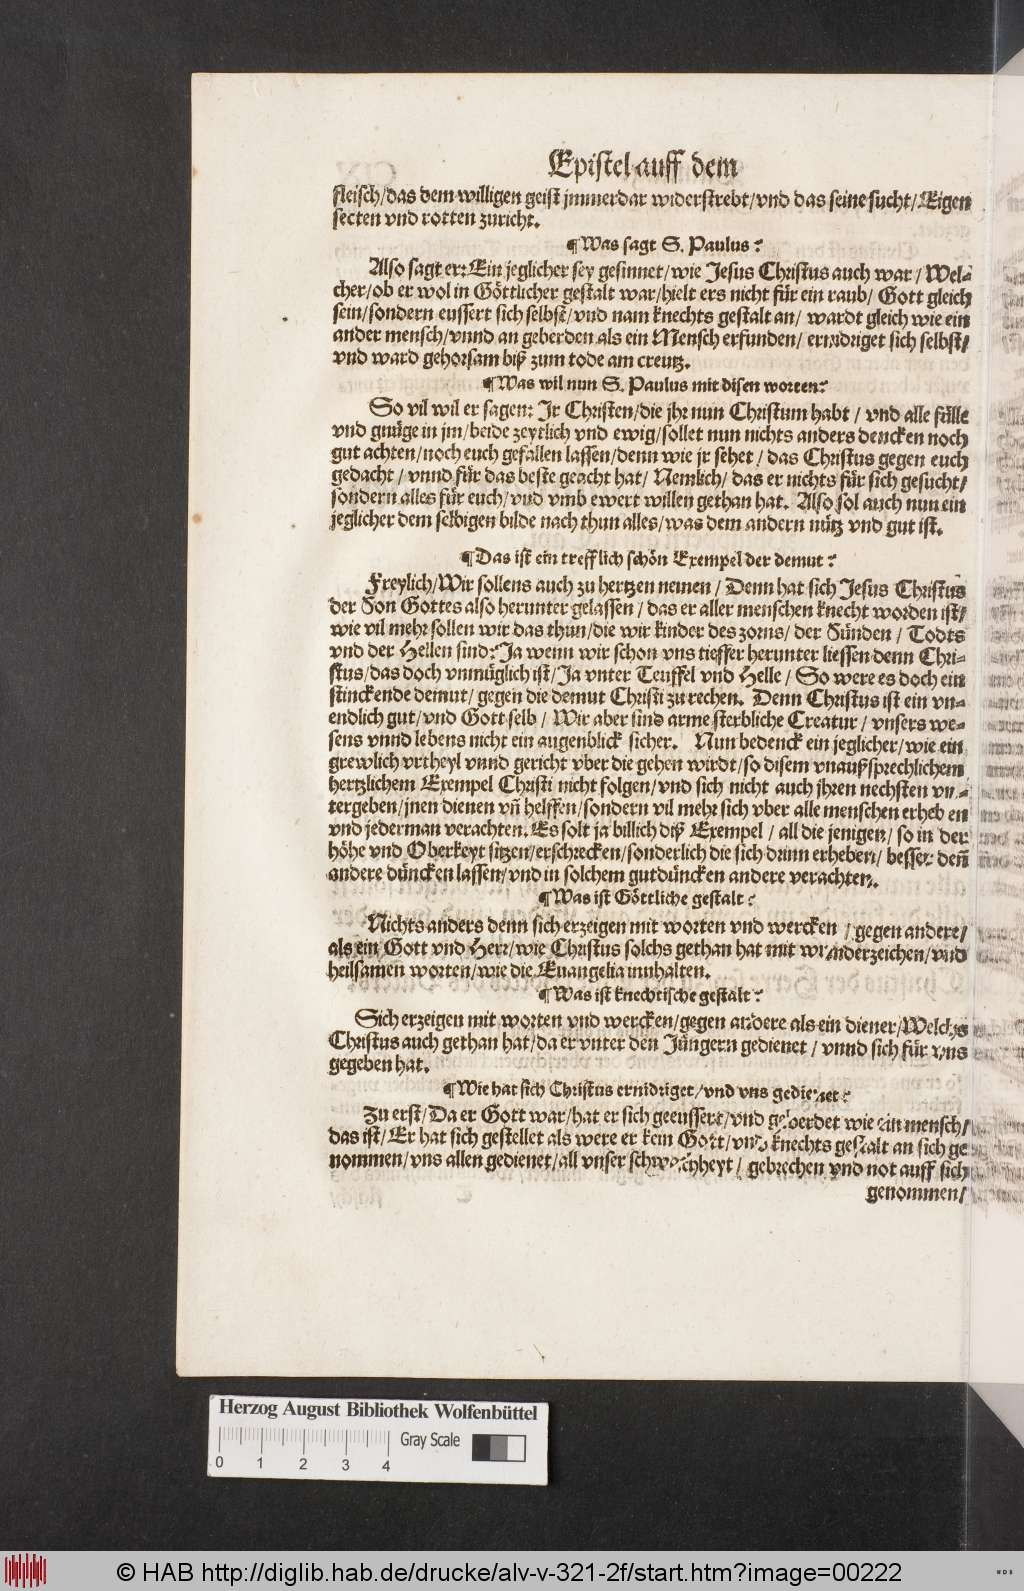 Epistel auff dem
fleisch/das dem willigen geist jmmerdar widerstrebt/vnd das seine sucht/Eigen
secten vnd rotten zuricht.
¶Was sagt S. Paulus?
Also sagt er: Ein jeglicher sey gesinnet/wie Jesus Christus auch war/Wel-
cher/ob er wol in Göttlicher gestalt war/hielt ers nicht für ein raub/Gott gleich
sein/sondern eussert sich selbst/vnd nam knechts gestalt an/wardt gleich wie ein
ander mensch/vnnd an geberden als ein Mensch erfunden/ernidriget sich selbst/
vnd ward gehorsam biß zum tode am creutz.
¶Was wil nun S. Paulus mit disen worten?
So vil wil er sagen: Jr Christen/die jhr nun Christum habt/vnd alle fülle
vnd gnüge in jm/beide zeytlich vnd ewig/sollet nun nichts anders dencken noch
gut achten/noch euch gefallen lassen/denn wie jr sehet/das Christus gegen euch
gedacht/vnnd für das beste geacht hat/Nemlich/das er nichts für sich gesucht/
sondern alles für euch/vnd vmb ewert willen gethan hat. Also sol auch nun ein
jeglicher dem selbigen bilde nach thun alles/was dem andern nütz vnd gut ist.
¶Das ist ein trefflich schön Exempel der demut?
Freylich/Wir sollens auch zu hertzen nemen/Denn hat sich Jesus Christus
der Son Gottes also herunter gelassen/das er aller menschen knecht worden ist/
wie vil mehr sollen wir das thun/die wir kinder des zorns/der Sünden/Todts
vnd der Hellen sind? Ja wenn wir schon vns tieffer herunter liessen denn Chri-
stus/das doch vnmüglich ist/Ja vnter Teuffel vnd Helle/So were es doch ein
stinckende demut/gegen die demut Christi zu rechen. Denn Christus ist ein vn-
endlich gut/vnd Gott selb/Wir aber sind arme sterbliche Creatur/vnsers we-
sens vnnd lebens nicht ein augenblick sicher. Nun bedenck ein jeglicher/wie ein
grewlich vrtheyl vnnd gericht vber die gehen wirdt/so disem vnaußsprechlichem
hertzlichem Exempel Christi nicht folgen/vnd sich nicht auch jhren nechsten vn-
tergeben/jnen dienen vñ helffen/sondern vil mehr sich vber alle menschen erheben
vnd jederman verachten. Es solt ja billich diß Exempel/all die jenigen/so in der
höhe vnd Oberkeyt sitzen/erschrecken/sonderlich die sich drinn erheben/besser deñ
andere düncken lassen/vnd in solchem gutdüncken andere verachten.
¶Was ist Göttliche gestalt?
Nichts anders denn sich erzeigen mit worten vnd wercken/gegen andere/
als ein Gott vnd Herr/wie Christus solchs gethan hat mit wunderzeichen/vnd
heilsamen worten/wie die Euangelia innhalten.
¶Was ist knechtische gestalt?
Sich erzeigen mit worten vnd wercken/gegen andere als ein diener/Welchs
Christus auch gethan hat/da er vnter den Jüngern gedienet/vnnd sich für vns
gegeben hat.
¶Wie hat sich Christus ernidriget/vnd vns gedienet?
Zu erst/Da er Gott war/hat er sich geeussert/vnd geberdet wie ein mensch/
das ist/Er hat sich gestellet als were er kein Gott/vnd knechts gestalt an sich ge
nommen/vns allen gedienet/all vnser schwachheyt/gebrechen vnd not auff sich
genommen/
Herzog August Bibliothek Wolfenbüttel
Gray Scale
0 1 2 3 4
© HAB http://diglib.hab.de/drucke/alv-v-321-2f/start.htm?image=00222